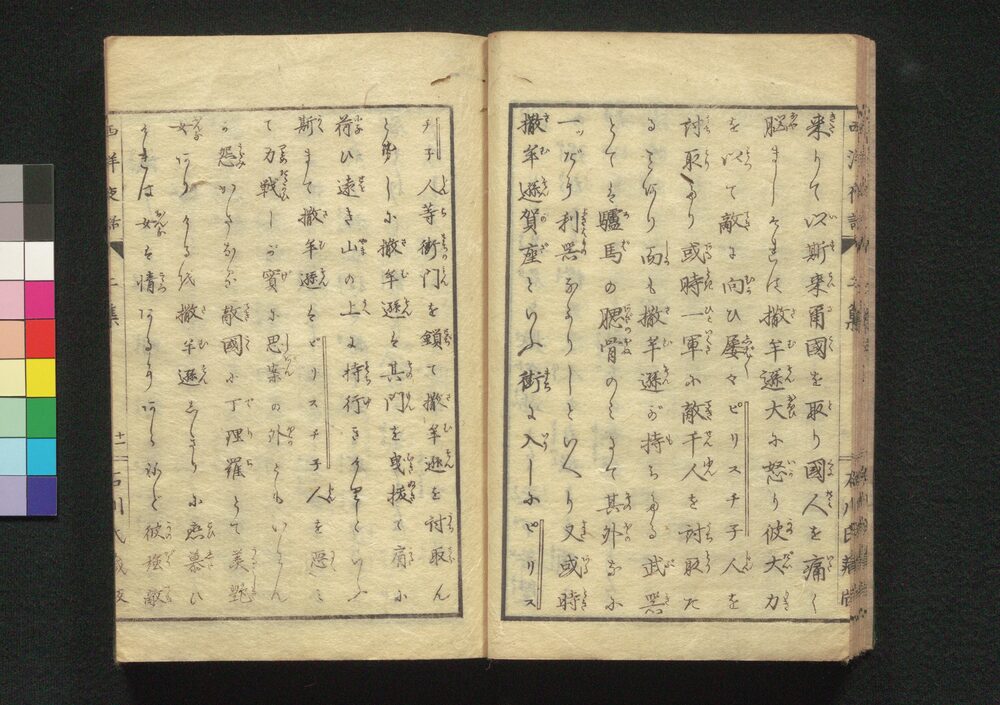 来りて以斯来爾國を取り國人を痛く
脳ましければ撒羊遜大に怒り彼大力
を以て敵に向ひ屡々ピリスチ子人を
討取たり或時一軍に敵千人を討取た
る事あり而も撒羊遜が持ちたる武器
とては驢馬の腮骨のみにて其外なに
一ツだり利器なかりしといへり又或時
撒羊遜賀座といふ街に入しにピリス
チ子人等街門を鎖て撒羊遜を討取ん
とせしに撒羊遜は其門を曳拔て肩に
荷ひ遠き山の上に持行きけりといふ
斯まで撒羊遜はピリスチ子人を惡み
て力戦しが實に思案の外ともいはん
か怨かさなる敵國に丁理羅とて美艶
女ありけるを撒羊遜しきりに恋慕ひ
ければ女も情あるよりあしねど彼強敵
西洋夜話
二集
十一
石川氏蔵版